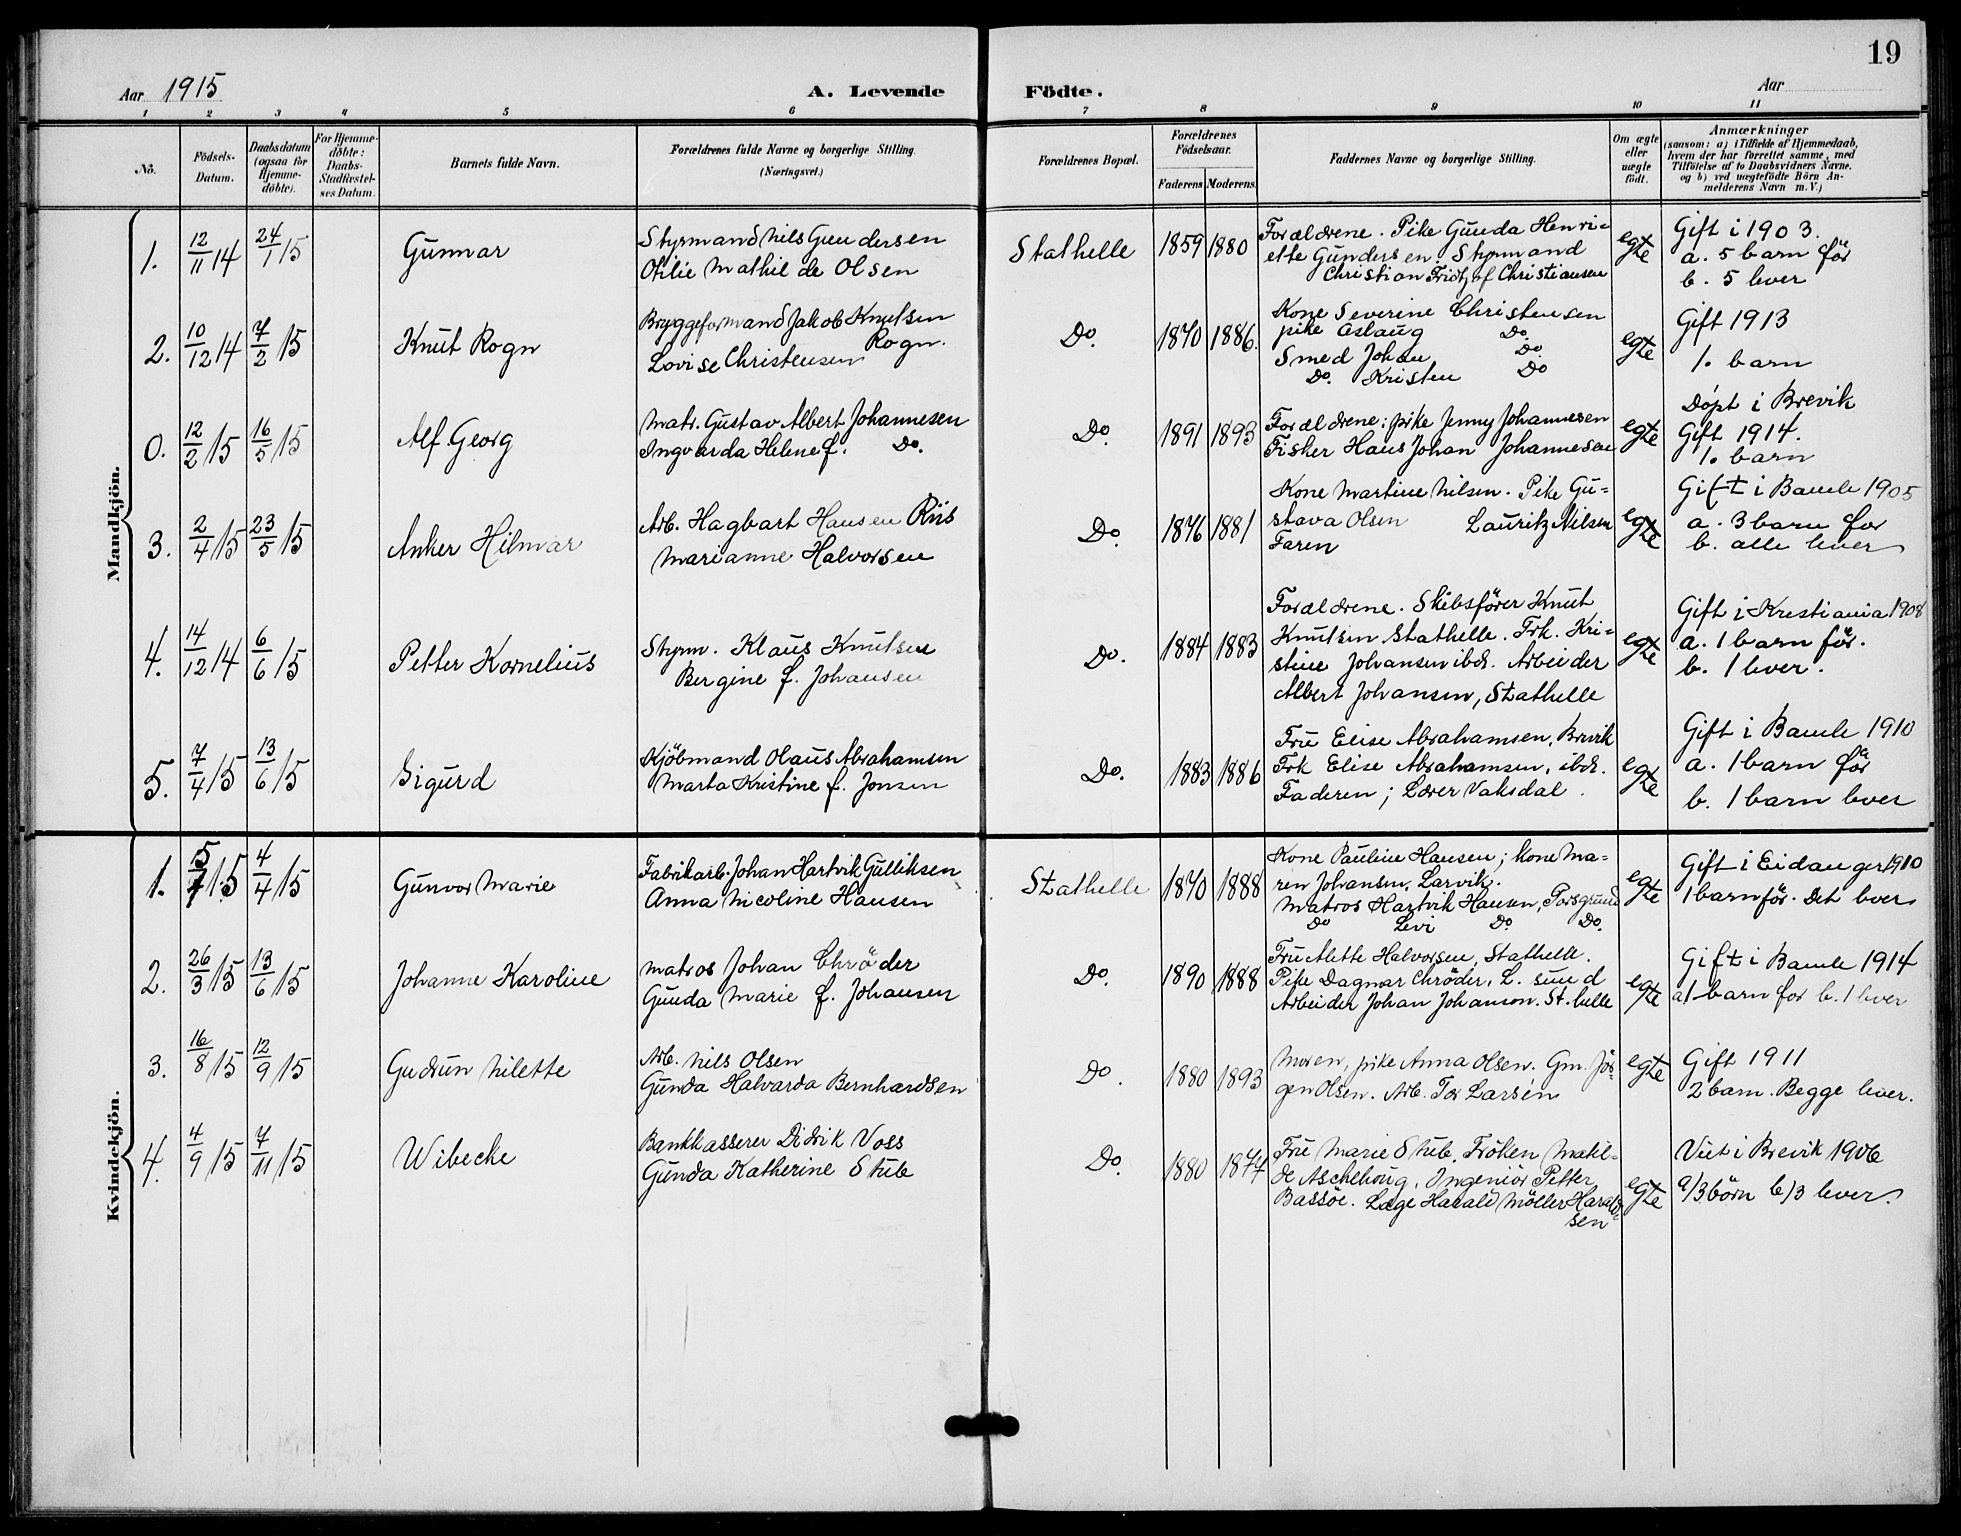 19
Aar 1915
A. Levende Födte.
Aar
1 2 3 4 5 6 7 8 9 10 11
No.
Födsels-Datum.
Daabsdatum (ogsaa for Hjemme-döbte).
For Hjemme-döbte: Daabs-Stadfæstel-ses Datum.
Barnets fulde Navn.
Forældrenes fulde Navne og borgerlige Stilling. (Næringsvei.)
Forældrenes Bopæl.
Forældrenes Födselsaar.
Faderens Moderens.
Faddernes Navne og borgerlige Stilling.
Om ægte eller uægte födt.
Anmærkninger
(saasom: a) i Tilfælde af Hjemmedaab,
hvem der har forrettet samme, med
Tilföielse af to Daabsvidners Navne,
og b) ved uægtefödte Börn An-
melderens Navn m. V.)
Mandkjön.
1. 12/11 14 24/1 15 Gunnar
Styrmand Nils Gundersen
Otilie Mathilde Olsen
Stathelle 1859 1880
Forældrene. Pike Gunda Henri-
ette Gundersen. Styrmand
Christian Fridtjof Christiansen
egte
Gift i 1903.
a. 5 barn för
b. 5 lever
2. 10/12 14 7/2 15 Knut Rogn
Bryggeformand Jakob Knutsen
Rogn.
Lovise Christensen
Do. 1870 1886.
Kone Severine Christensen
pike Aslaug Do.
Smed Johan Do
Do. Kristen Do
egte
Gift 1913
1. barn
0. 12/2 15 16/5 15 Alf Georg
Matr. Gustav Albert Johannesen
Ingvarda Helene f. Do.
Do. 1891 1893
Forældrene: pike Jenny Johannesen
Fisker Hans Johan Johannesen
egte
Döpt i Brevik
Gift 1914.
1. barn
3. 2/4 15 23/5 15 Anker Hilmar
Arb. Hagbart Hansen Riis
Marianne Halvorsen
Do. 1876 1881
Kone Martine Nilsen. Pike Gu=
stava Olsen Lauritz Nilsen
Faren
egte
Gift i Bamle 1905
a. 3 barn for
b. alle lever
4. 14/12 14 6/6 15 Petter Kornelius
Styrm. Klaus Knutsen
Bergine f. Johansen
Do. 1884 1883
Forældrene. Skibsförer Knut
Knutsen Stathelle. Frk. Kri-
stine Johansen ibd. Arbeider
Albert Johansen, Stathelle
egte
Gift i Kristiania 1908
a. 1 barn för.
b. 1 lever.
5. 7/4 15 13/6 15 Sigurd
Kjöbmand Olaus Abrahamsen
Marta Kristine f. Jonsen
Do. 1883 1886
Fru Elise Abrahamsen, Brevik
Frk Elise Abrahamsen, ibd.
Faderen; Lærer Vaksdal.
egte
Gift i Bamle 1910
a. 1 barn för
b. 1 barn lever
Kvindekjön.
1. 5/1 15 4/4 15 Gunvor Marie
Fabrikarb. Johan Hartvik Gulliksen
Anna Nicoline Hansen
Stathelle 1870 1888
Kone Pauline Hansen; Kone Ma=
ren Johansen, Larvik.
Matros Hartvik Hansen, Porsgrund
Do Levi Do Do.
egte
Gift i Eidanger 1910
1 barn för. Det lever
2. 26/3 15 13/6 15 Johanne Karoline
Matros Johan Chröder
Gunda Marie f. Johansen
Do. 1890 1888
Fru Alette Halvorsen, Stathelle.
Pike Dagmar Chröder, L. sund
Arbeider Johan Johanson. St.helle
egte
Gift i Bamle 1914
a 1 barn for b. 1 lever
3. 16/8 15 12/9 15 Gudrun Nilette
Arb. Nils Olsen
Gunda Halvarda Bernhardsen
Do. 1880 1893
Moren, pike Anna Olsen. Gm. Jör-
gen Olsen. Arb. Tor Larsen
egte
Gift 1911
2 barn. Begge lever.
4. 4/9 15 7/11 15 Wibecke
Bankkasserer Didrik Voss
Gunda Katherine Stub
Do. 1880 1877
Fru Marie Stub, Fröken Matil-
de Aschehoug, Ingeniör Petter
Bassöe. Læge Harald Möller Harald-
sen
egte
Viet i Brevik 1906
a/3 börn b/3 lever